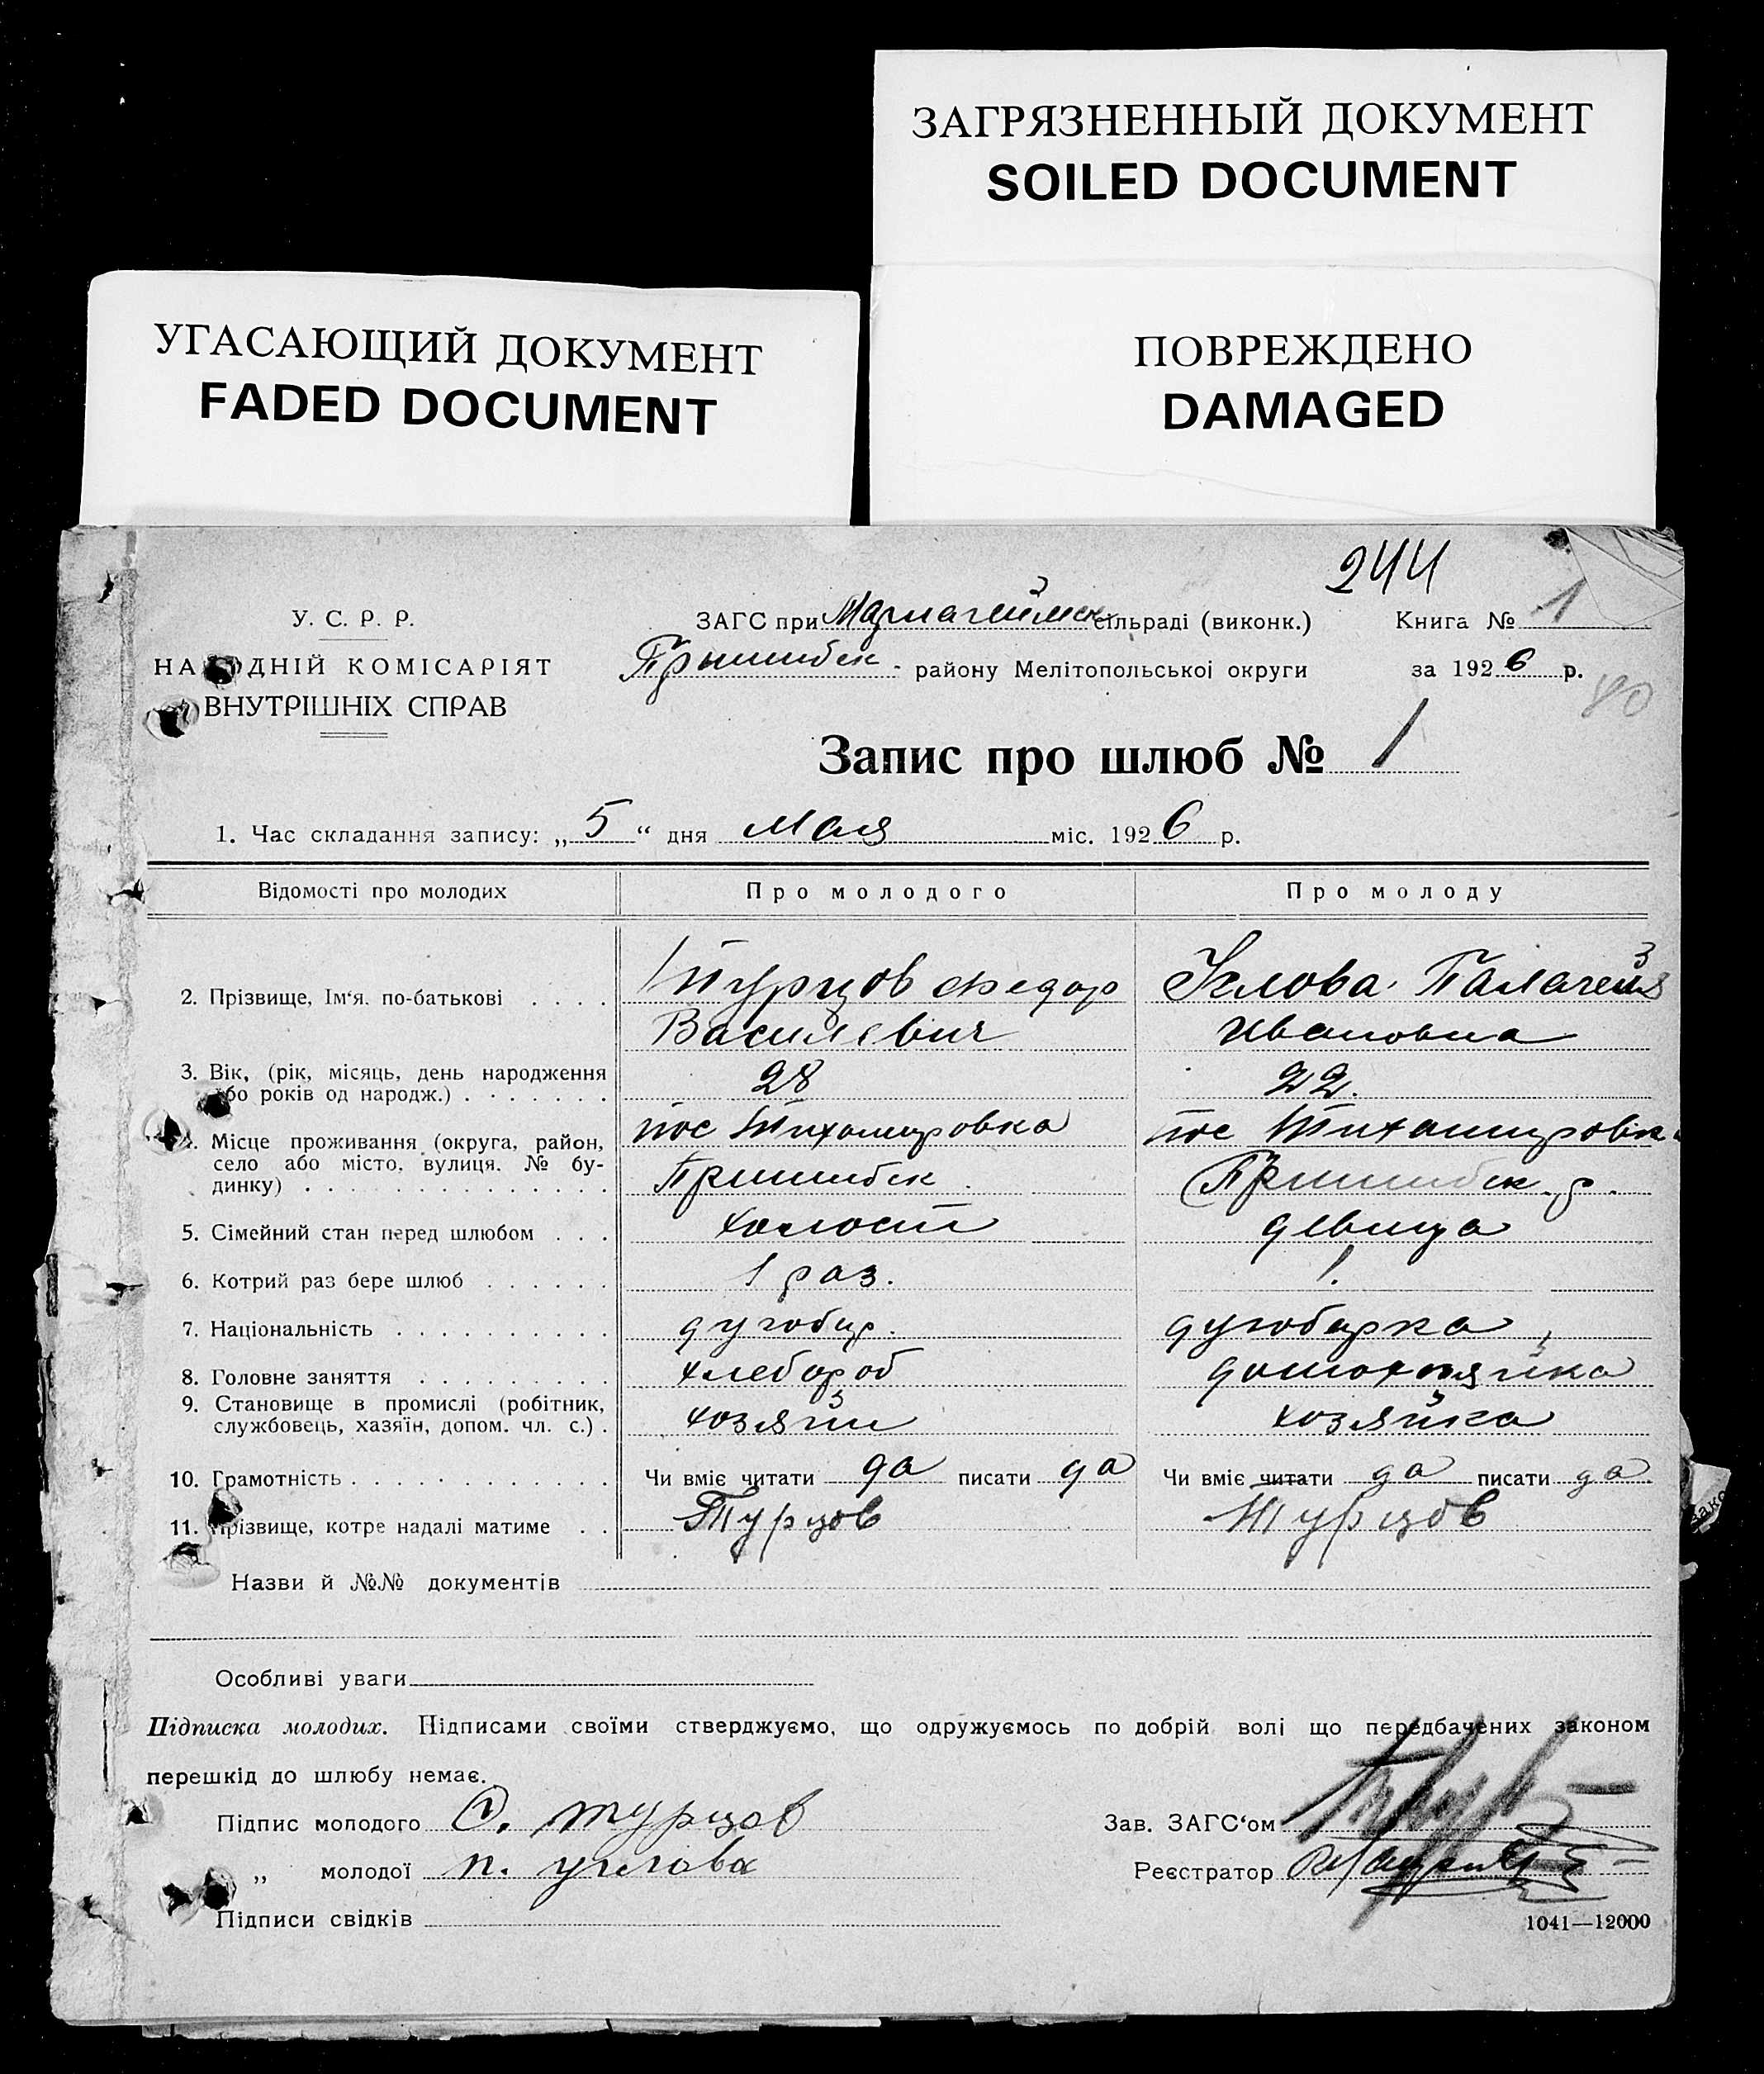 ЗАГРЯЗНЕННЫЙ ДОКУМЕНТ
SOILED DOCUMENT
УГАСАЮЩИЙ ДОКУМЕНТ
FADED DOCUMENT
ПОВРЕЖДЕНО
DAMAGED
244
У. С. Р. Р.
НА ОДНІЙ КОМІСАРІЯТ
ВНУТРІШНІХ СПРАВ
ЗАГС при сільраді (виконк.)
Книга № 1
Пришибск. району Мелітопольської округи
за 1926 р.
80
Запис про шлюб № 1
1. Час складання запису: „5“ дня Мая міс. 1926 р.
Відомості про молодих Про молодого Про молоду
2. Прізвище, Ім‘я. по-батькові . . . . Турцов Федор
Василевич Ивановна
3. Вік, (рік, місяць, день народження
бо років од народж.) . . . . . . 28 22.
Місце проживання (округа, район, пос Тихомировка пос Тихомировка
село або місто, вулиця. № бу-
динку) . . . . . . . . . . . . . Пришибск. Пришибск. р.
5. Сімейний стан перед шлюбом . . . холост девица
6. Котрий раз бере шлюб . . . . . . 1 раз. 1.
7. Національність . . . . . . . . . . духобор. духоборка
8. Головне заняття . . . . . . . . . хлебороб домохозяйка
9. Становище в промислі (робітник,
службовець, хазяїн, допом. чл. с.) . хозяйн хозяйка
10. Грамотність . . . . . . . . . . . . Чи вміє читати да писати да Чи вміє читати да писати да
11. Прізвище, котре надалі матиме . . Турцов Турцов
Назви й №№ документів
Особливі уваги
Підписка молодих. Підписами своїми стверджуємо, що одружуємось по добрій волі що передбачених законом
перешкід до шлюбу немає.
Підпис молодого Ф. Турцов
Зав. ЗАГС‘ом
„ молодої П.
Реєстратор
Підписи свідків
1041—12000